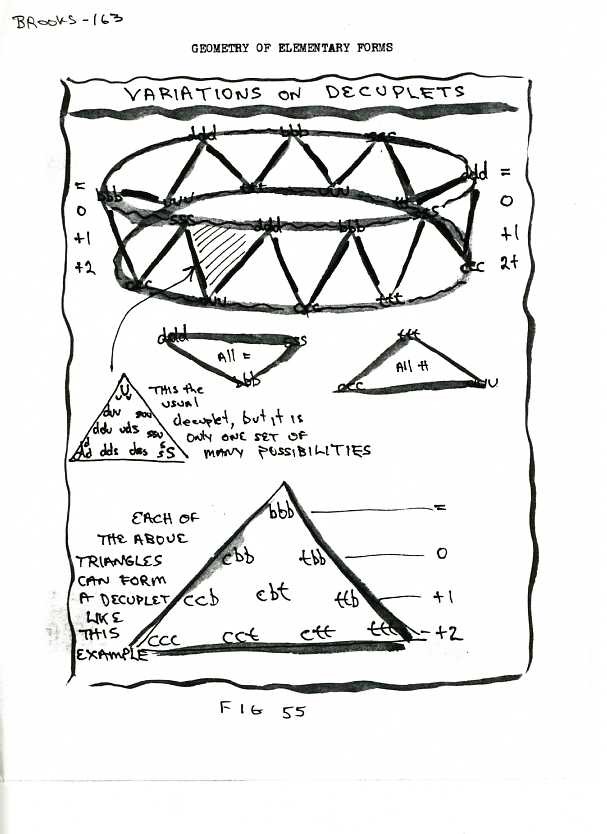 BROOKS-163
GEOMETRY OF ELEMENTARY FORMS
VARIATIONS ON DECUPLETS
ddd bbb sss
= bbb uuu ttt uuu ddd =
0 sss ddd bbb 0
+1 +1
+2 ccc uuu ccc ttt ccc 2+
ddd sss
All =
bbb
ttt
All #
ccc uuu
THIS THE
USUAL
decuplet, but it is
ONLY ONE SET OF
MANY POSSIBILITIES
duu suu
ddu uds ssu
dds dss
EACH OF
THE ABOVE
TRIANGLES
CAN FORM
A DECUPLET
LIKE
THIS
EXAMPLE
bbb =
cbb tbb 0
ccb cbt ttb +1
ccc cct ctt ttt +2
FIG 55